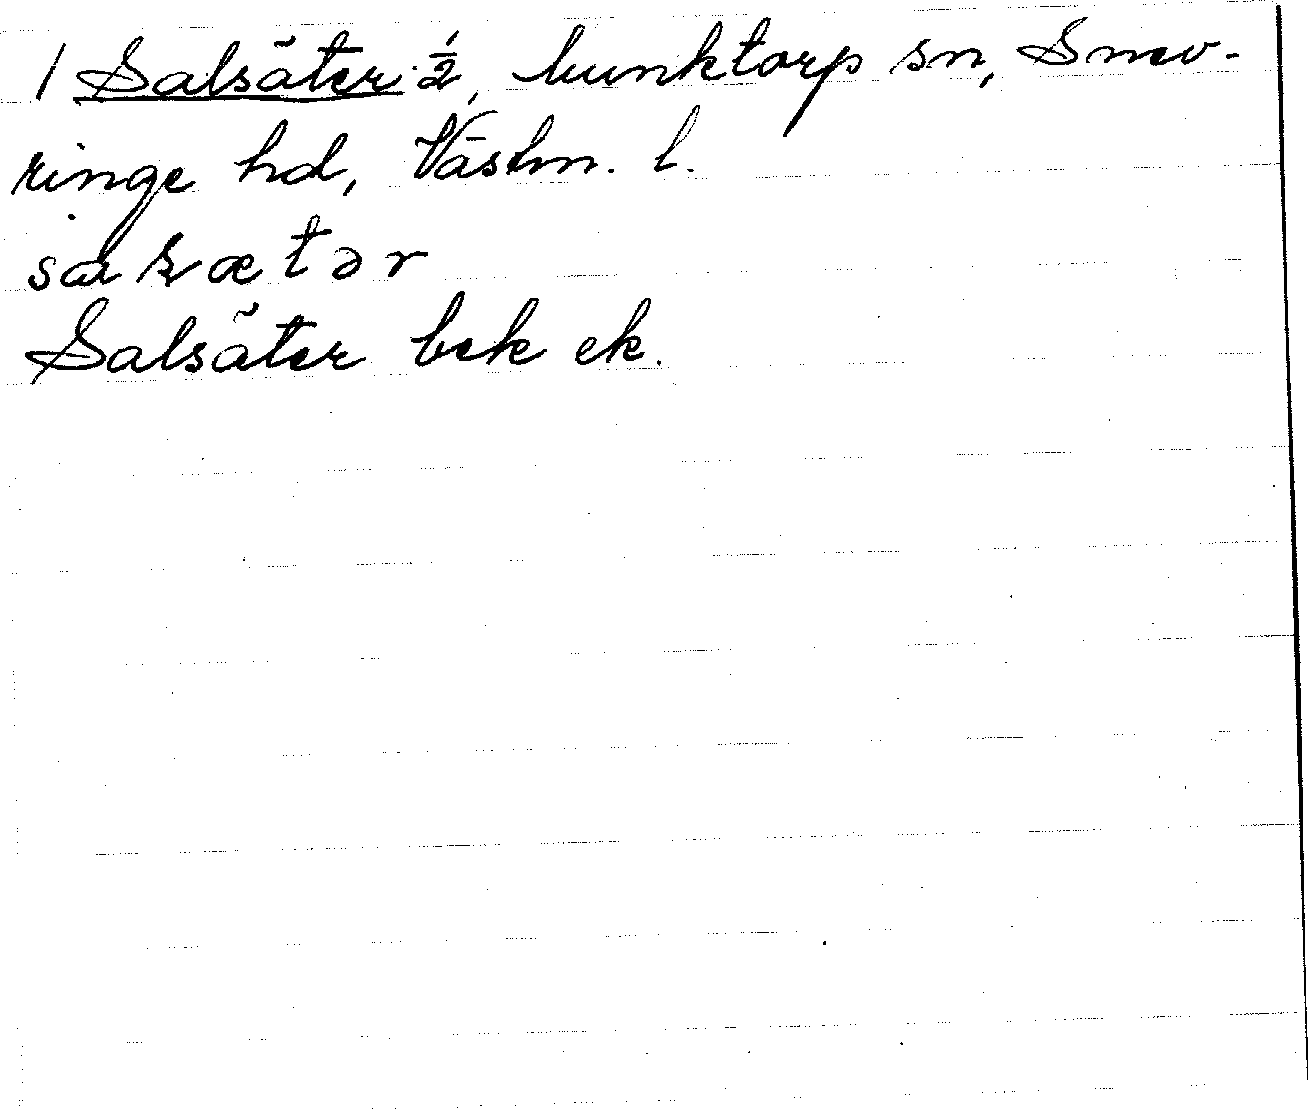 1 Salsäter ½, Munktorp sn, Snev-
ringe hd, Västm. l.
Salsäter bek ek.